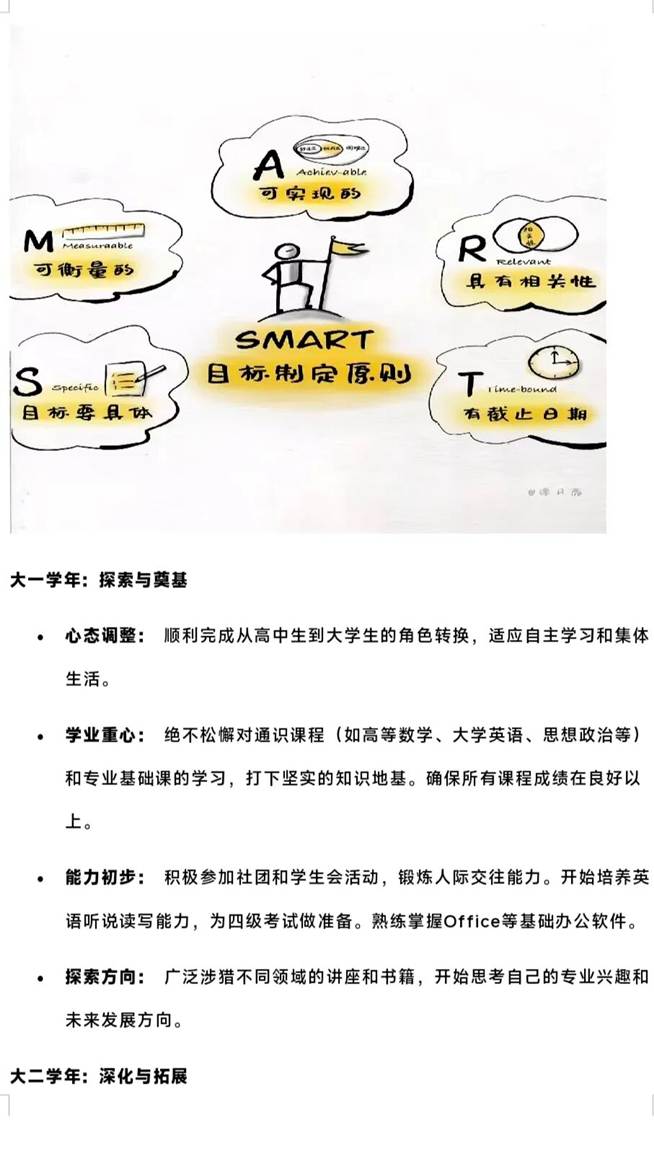 A
Achiev-able
可实现的
M
Measuraable
可衡量的
R
Relevant
具有相关性
SMART
目标制定原则
S
Specific
目标要具体
T
Time-bound
有截止日期
大一学年：探索与奠基
• 心态调整： 顺利完成从高中生到大学生的角色转换，适应自主学习和集体
生活。
• 学业重心： 绝不松懈对通识课程（如高等数学、大学英语、思想政治等）
和专业基础课的学习，打下坚实的知识地基。确保所有课程成绩在良好以
上。
• 能力初步： 积极参加社团和学生会活动，锻炼人际交往能力。开始培养英
语听说读写能力，为四级考试做准备。熟练掌握Office等基础办公软件。
• 探索方向： 广泛涉猎不同领域的讲座和书籍，开始思考自己的专业兴趣和
未来发展方向。
大二学年：深化与拓展